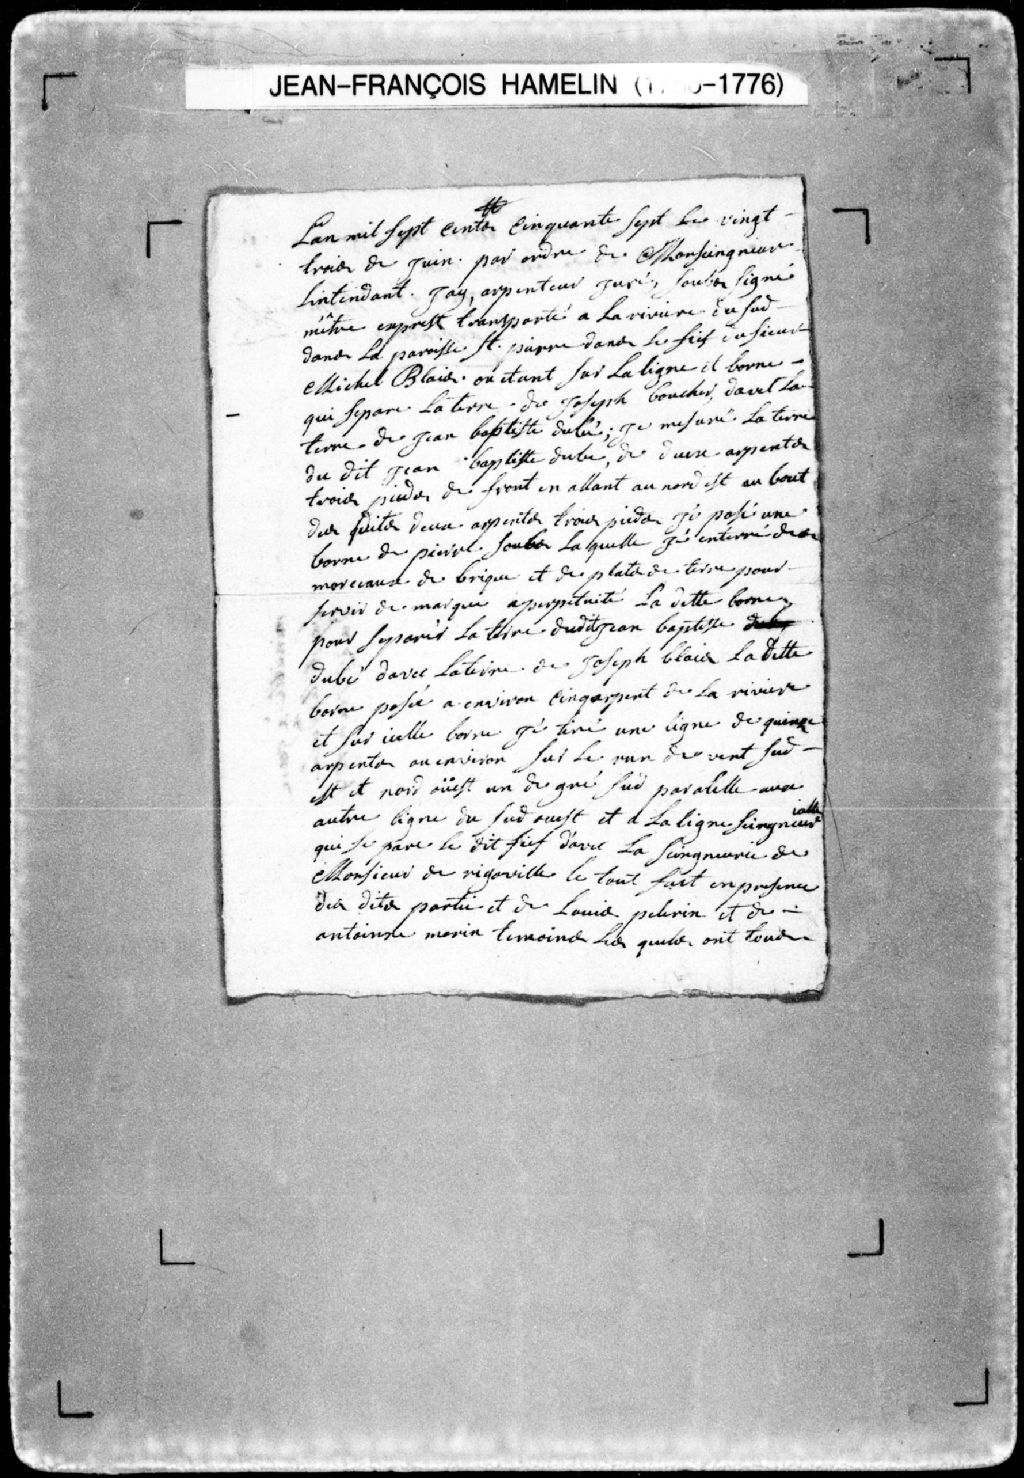 JEAN-FRANÇOIS HAMELIN (1   -1776)
Lan mil sept cents Cinquante sept le vingt
trois de Juin. par ordre de Monseingneur
Lintendant. Jay, arpenteur Juré, soubs signé
mêtre exprest transporté a La riviere du sud
dans La paroisse St. pierre dans le fief du sieur
Michel Blais. ou etant sur La ligne et borne
qui separe La terre de Joseph boucher, davec La
terre de Jean baptiste dubé; Je mesuré La terre
du dit Jean baptiste dube, de deux arpents
trois pieds de front en allant au nord est au bout
des quits deux arpents trois pieds Jé posé une
borne de pierre soubs Laquelle Jé enterré des
morceaux de brique et de plats de terre pour
servir de marque aperpetuité La ditte borne
pour separer La terre dudit Jean baptiste
dubé davec Laterre de Joseph blais La ditte
borne posée a environ Cinq arpent de La riviere
et sur icelle borne Jé tiré une ligne de quinze
arpents ou environ sur le run de vent sud
est et nord oüest un degré sud paralelle aux
autre ligne du sud ouest et a La ligne seingneurialle
qui se pare le dit fief davec La seingneurie de
Monsieur de rigoville le tout fait en presence
des dits partie et de Louis pelerin et de
antoinne morin temoins Les quels ont tous